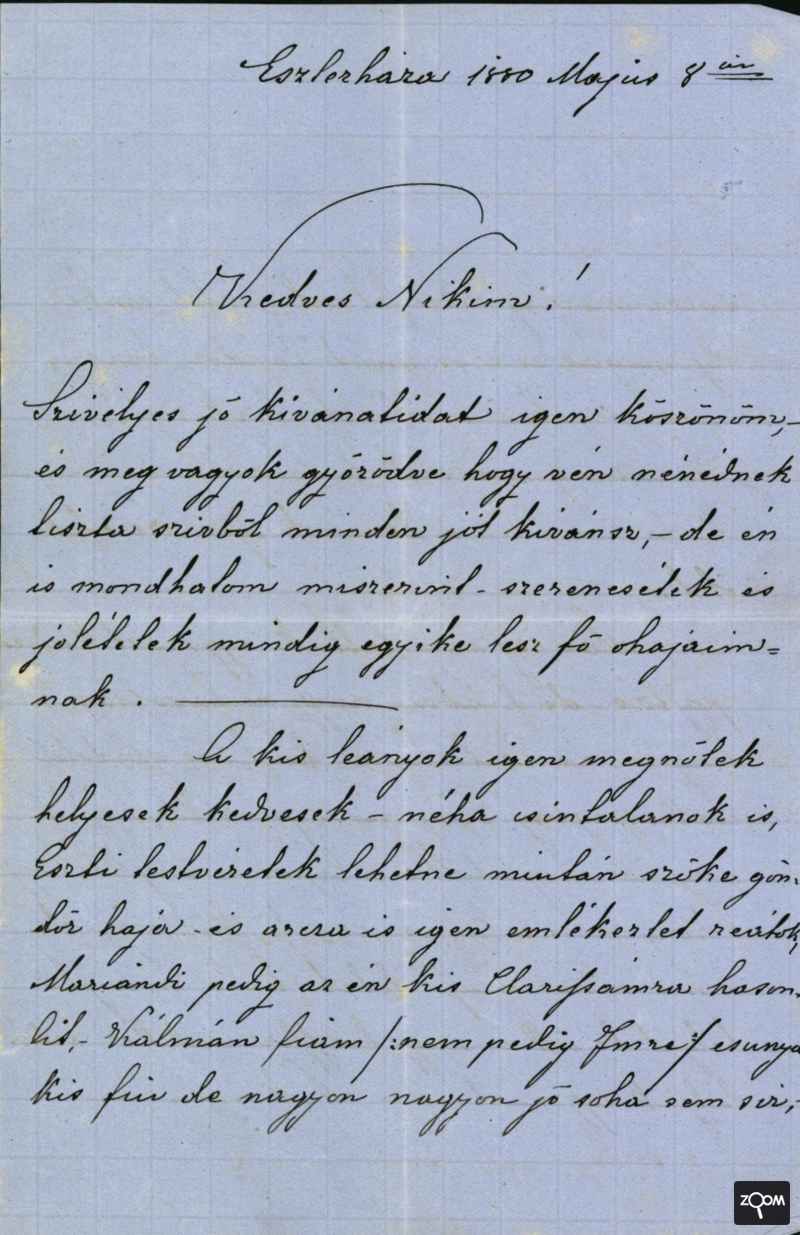 Eszlerhára 1880 Majus 8 án
Kedves Nikim!
Szivélyes jó kivánatidat igen köszönöm,–
és meg vagyok győződve hogy vén nénédnek
tiszta szivből minden jót kivánsz,– de én
is mondhatom miszerint - szerencsétek és
jolétetek mindig egyike lesz fő ohajaim=
nak.
A kis leányok igen megnőtek
helyesek kedvesek – néha csintalanok is,
Eszti testvéretek lehetne miután szőke gön-
dör haja - és arcza is igen emlékeztet reátok,
Mariandi pedig az én kis Clarissámra hason-
lit,- Kálmán fiam /:nem pedig Imre:/ csunya
kis fiu de nagyon nagyon jó soha sem sir,-
ZOOM